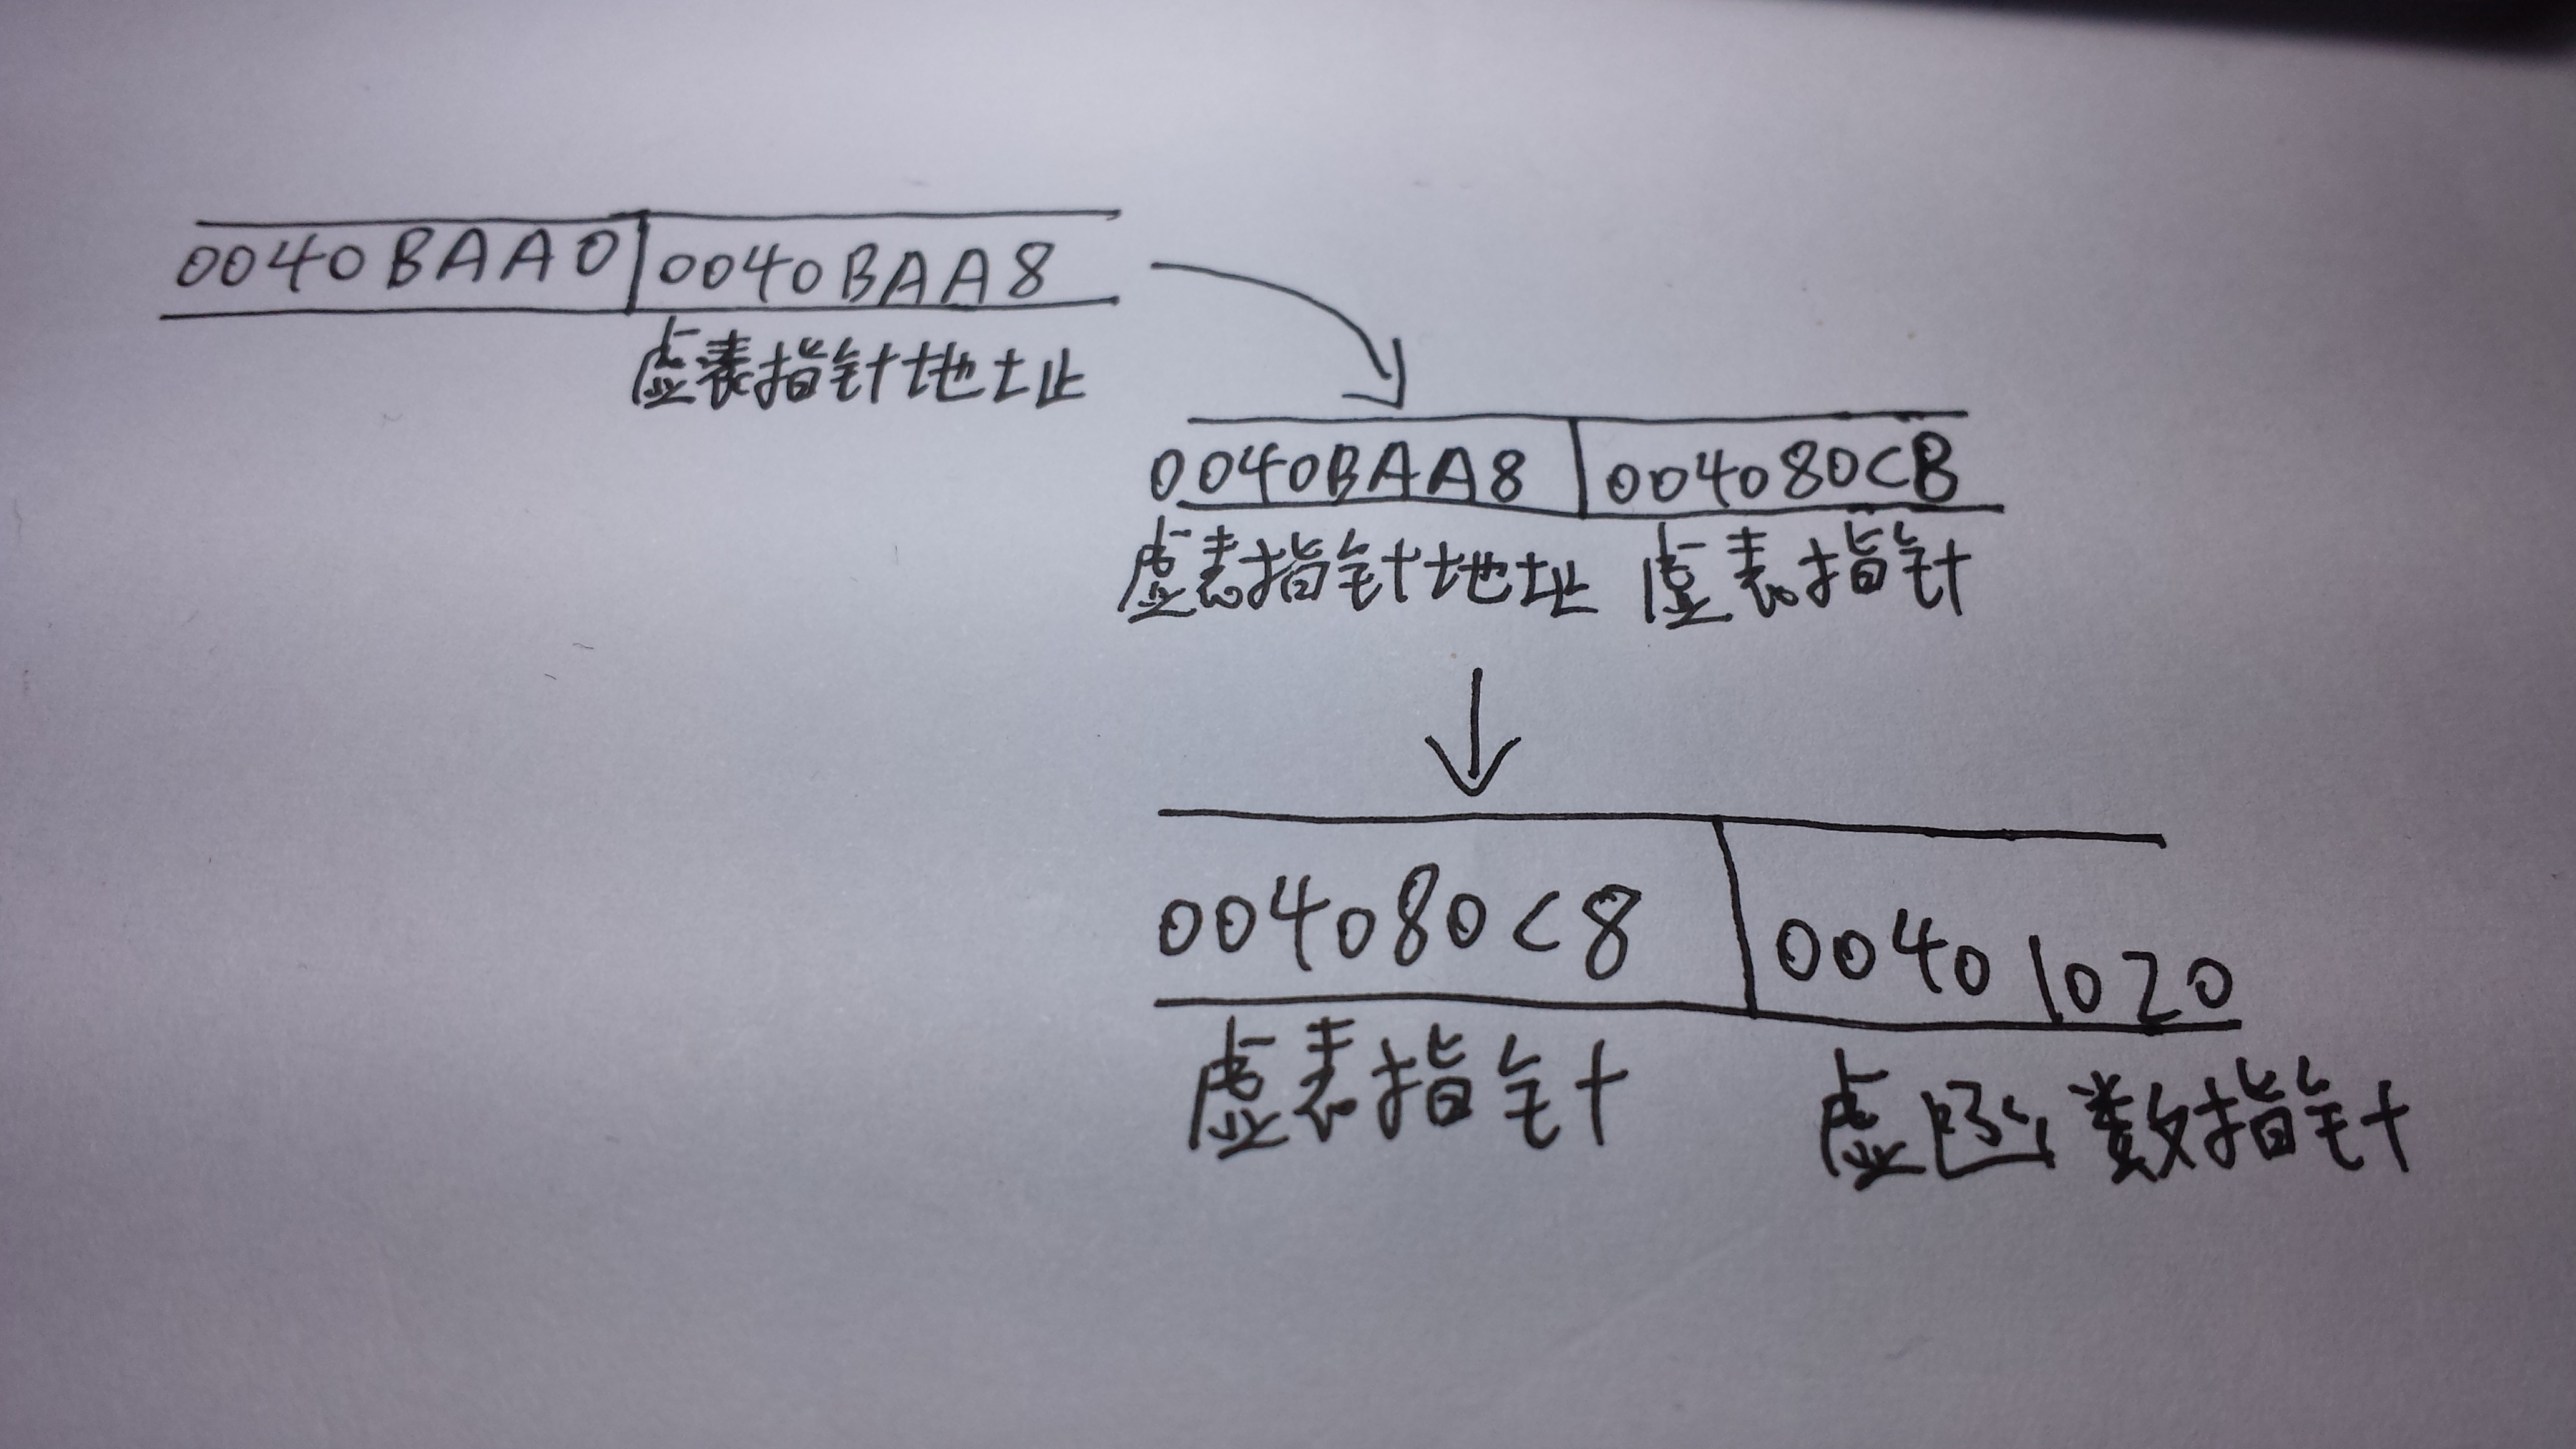 0040BAA0 0040BAA8
虚表指针地址
0040BAA8 004080CB
虚表指针地址 虚表指针
004080C8 00401020
虚表指针 虚函数指针